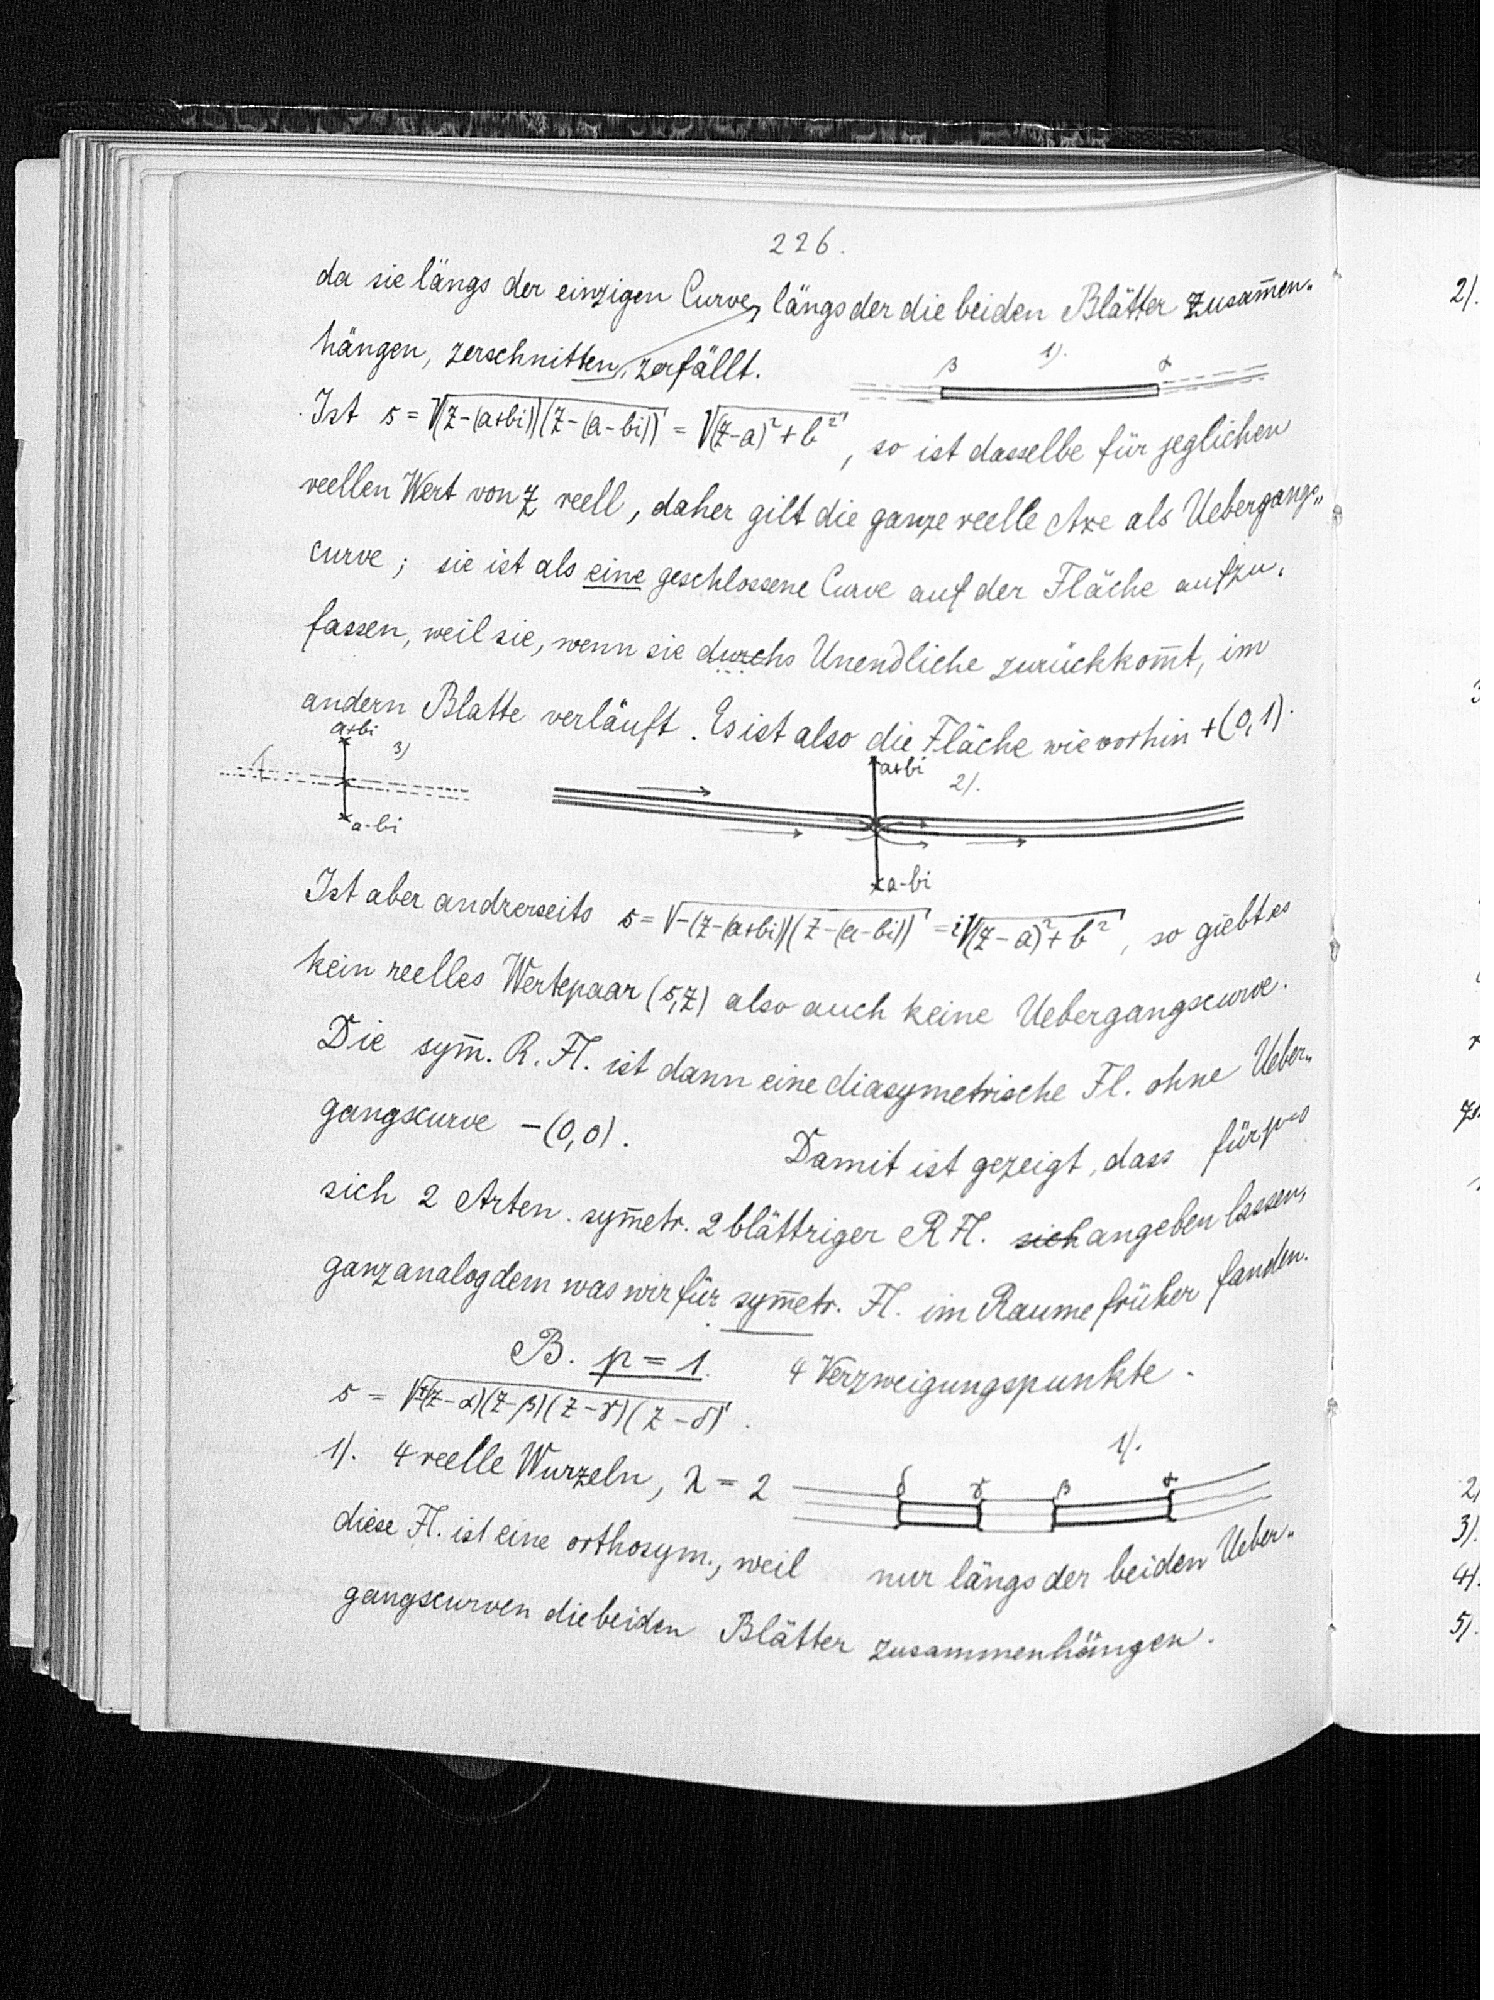 226.
da sie längs der einzigen Curve, längs der die beiden Blätter zusam̄en-
hängen, zerschnitten, zerfällt.
1). β α
Ist s = √(z-(a+bi))(z-(a-bi)) = √(z-a)²+b², so ist dasselbe für jeglichen
reellen Wert von z reell, daher gilt die ganze reelle Axe als Uebergangs-
curve; sie ist als eine geschlossene Curve auf der Fläche aufzu-
fassen, weil sie, wenn sie durchs Unendliche zurückkom̄t, im
andern Blatte verläuft. Es ist also die Fläche wie vorhin +(0,1).
a+bi 3) a-bi
a+bi 2). a-bi
Ist aber andrerseits s = √-(z-(a+bi))(z-(a-bi)) = i√(z-a)²+b², so giebt es
kein reelles Wertepaar (s,z) also auch keine Uebergangscurve.
Die sym̄. R. Fl. ist dann eine diasymetrische Fl. ohne Ueber-
gangscurve -(0,0). Damit ist gezeigt, dass für p=0
sich 2 Arten sym̄etr. 2 blättriger R Fl. sich angeben lassen,
ganz analog dem was wir für sym̄etr. Fl. im Raume früher fanden.
B. p = 1. 4 Verzweigungspunkte.
s = √±(z-α)(z-β)(z-γ)(z-δ).
1). 4 reelle Wurzeln, λ = 2
1). δ γ β α
diese Fl. ist eine orthosym., weil nur längs der beiden Ueber-
gangscurven die beiden Blätter zusammenhängen.
2).
2)
3).
4).
5).